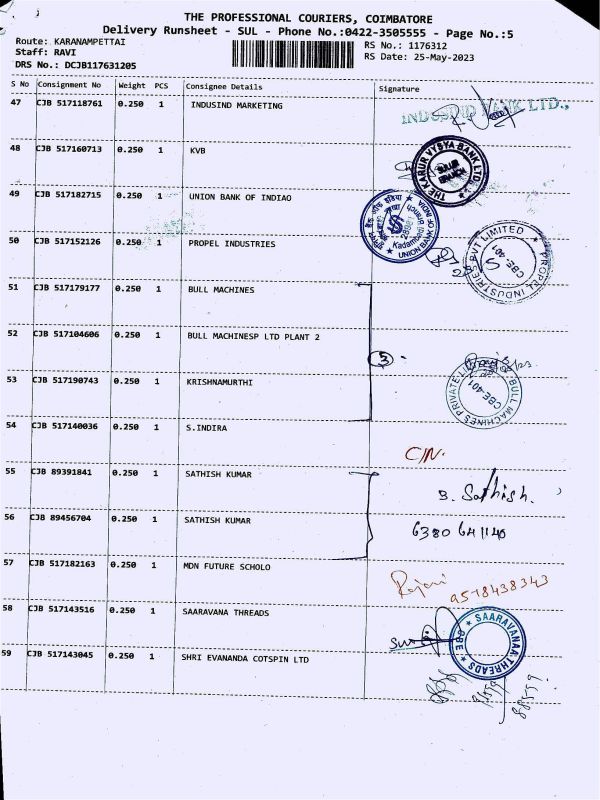 THE PROFESSIONAL COURIERS, COIMBATORE
Delivery Runsheet - SUL - Phone No.:0422-3505555 - Page No.:5
Route: KARANAMPETTAI
RS No.: 1176312
Staff: RAVI
RS Date: 25-May-2023
DRS No.: DCJB117631205
S No Consignment No Weight PCS Consignee Details Signature
47 CJB 517118761 0.250 1 INDUSIND MARKETING
INDUSIND BANK LTD.,
48 CJB 517160713 0.250 1 KVB
THE KARUR VYSYA BANK LTD.
SULUR
BRANCH
49 CJB 517182715 0.250 1 UNION BANK OF INDIAO
UNION BANK OF INDIA
50 CJB 517152126 0.250 1 PROPEL INDUSTRIES
PROPEL INDUSTRIES PVT LIMITED
CBE-401
51 CJB 517179177 0.250 1 BULL MACHINES
52 CJB 517104606 0.250 1 BULL MACHINESP LTD PLANT 2
53 CJB 517190743 0.250 1 KRISHNAMURTHI
BULL MACHINES PRIVATE
CBE-401
54 CJB 517140036 0.250 1 S.INDIRA
C/N.
55 CJB 89391841 0.250 1 SATHISH KUMAR
B. Sathish.
56 CJB 89456704 0.250 1 SATHISH KUMAR
6380 641140
57 CJB 517182163 0.250 1 MDN FUTURE SCHOLO
Rajani
9578438343
58 CJB 517143516 0.250 1 SAARAVANA THREADS
SAARAVANAA THREADS
59 CJB 517143045 0.250 1 SHRI EVANANDA COTSPIN LTD